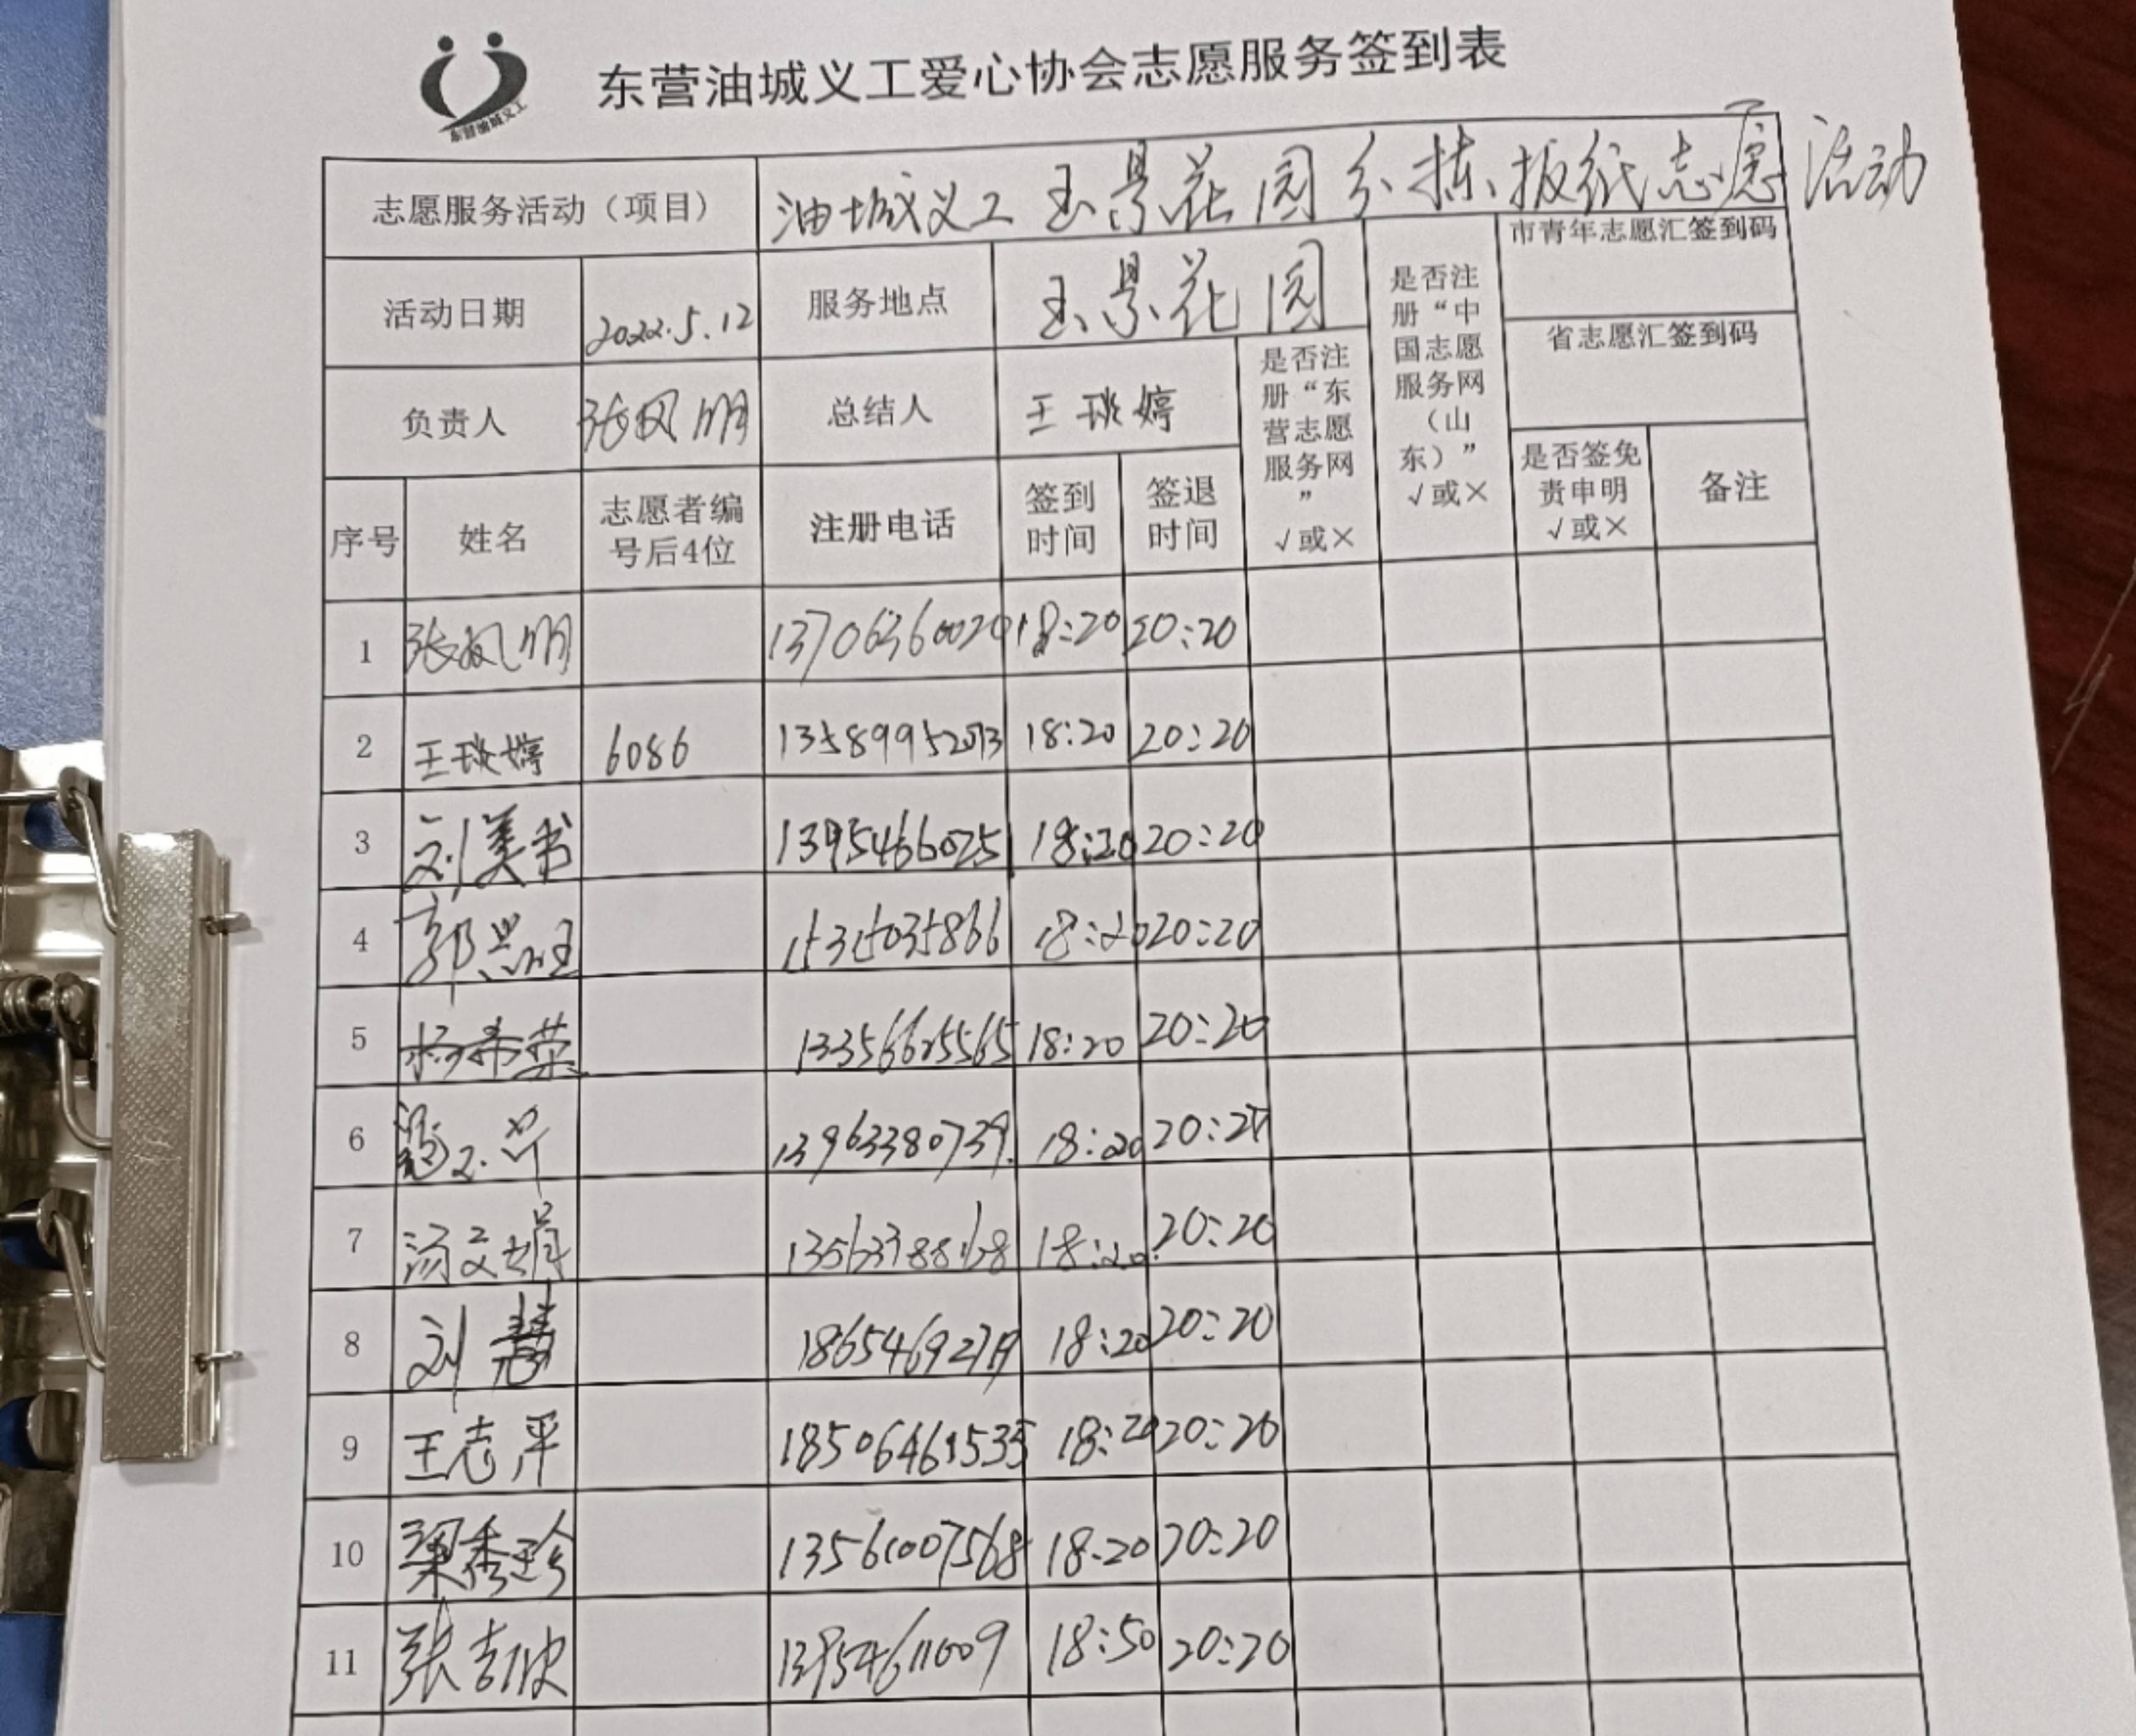 东营油城义工
东营油城义工爱心协会志愿服务签到表
志愿服务活动（项目） 油城义工玉景花园分拣板纸志愿活动
活动日期 2022.5.12 服务地点 玉景花园
是否注册“东营志愿服务网” √或×
是否注册“中国志愿服务网（山东）” √或×
市青年志愿汇签到码
省志愿汇签到码
负责人 张凤明 总结人 王琰婷
序号 姓名 志愿者编号后4位 注册电话 签到时间 签退时间 是否签免责申明 √或× 备注
1 张凤明 18:20 20:20
2 王琰婷 6086 18:20 20:20
3 刘美书 13954666025 18:20 20:20
4 15315035866 18:20 20:20
5 杨希荣 13356625565 18:20 20:20
6 13963380739 18:20
7 汤文娟 18:20 20:20
8 刘慧 18:20 20:20
9 王志平 18506461535 18:20 20:20
10 梁秀珍 13561007568 18:20 20:20
11 张吉欣 13954611009 18:50 20:20